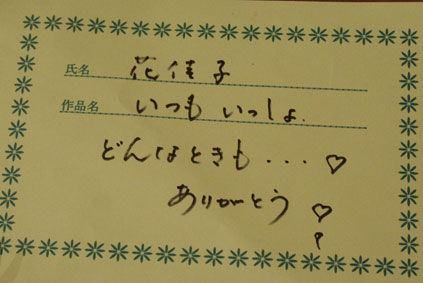 氏名 花佳子
作品名 いつも いっしょ.
どんなときも... ♡
ありがとう ♡